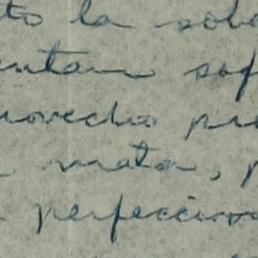 to la sob
entan sof
rovecho pre
mata, p
perfeccion